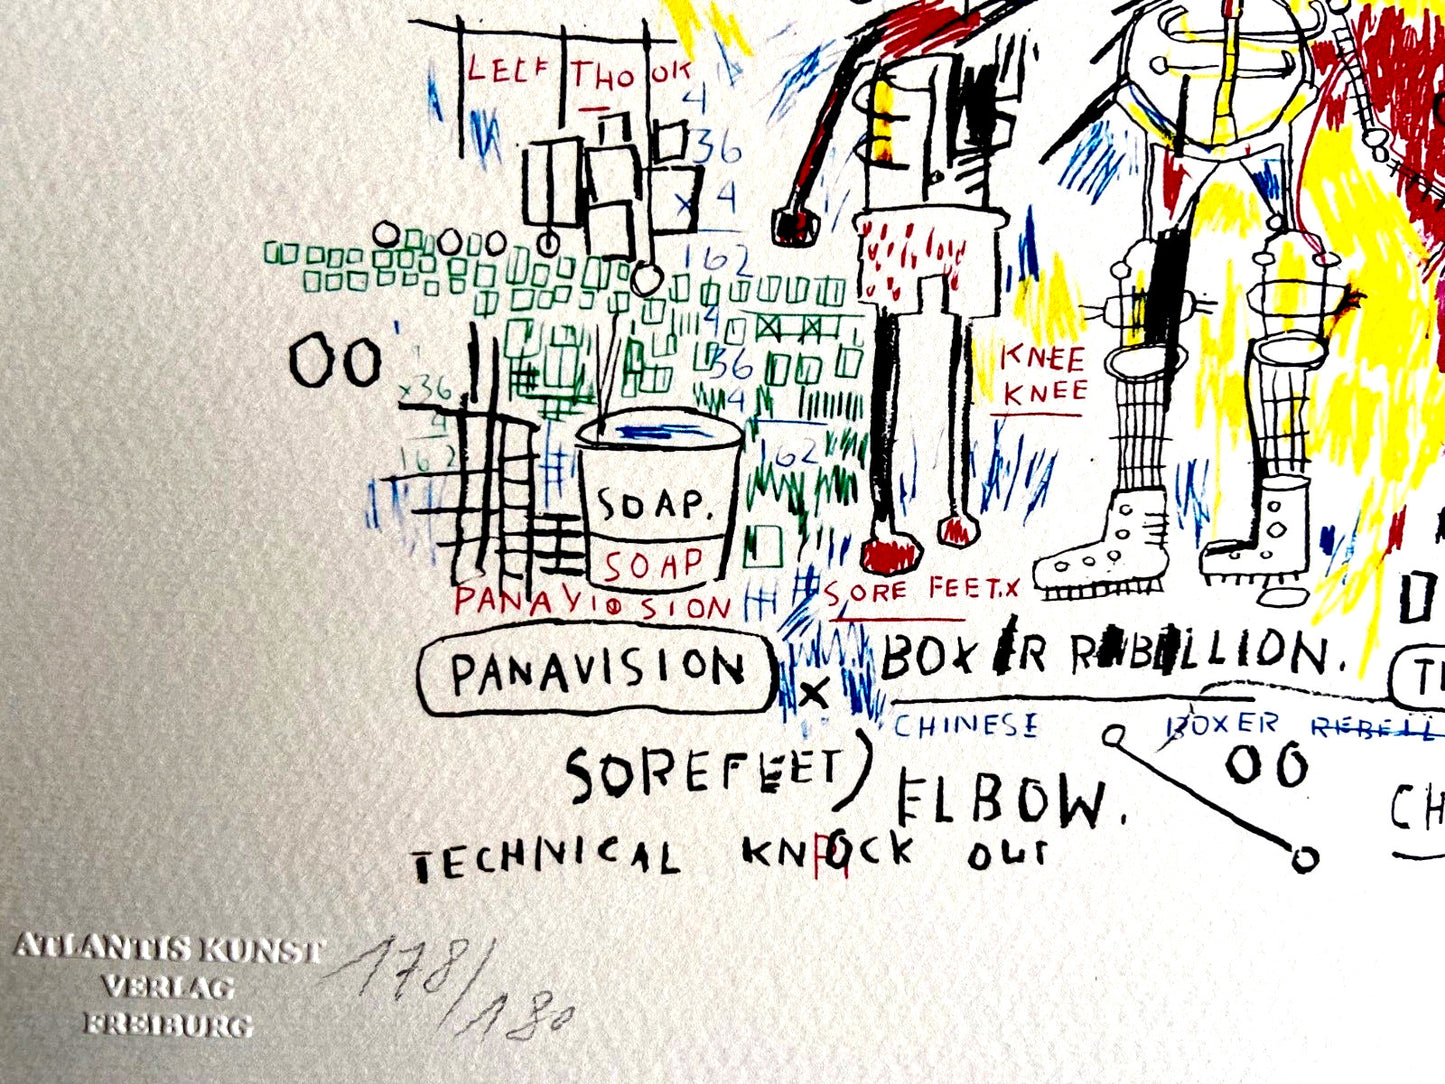 LEEF THO OK
4
36
x 4
162
OO
4
x36
36
4
4
162
162
KNEE
KNEE
SOAP.
SOAP
PANAVISION
SORE FEET.X
PANAVISION
X
BOXER REBELLION.
CHINESE BOXER REBELL
SOREFEET)
ELBOW.
OO
CH
TECHNICAL KNOCK OUT
ATLANTIS KUNST
VERLAG
FREIBURG
178/180